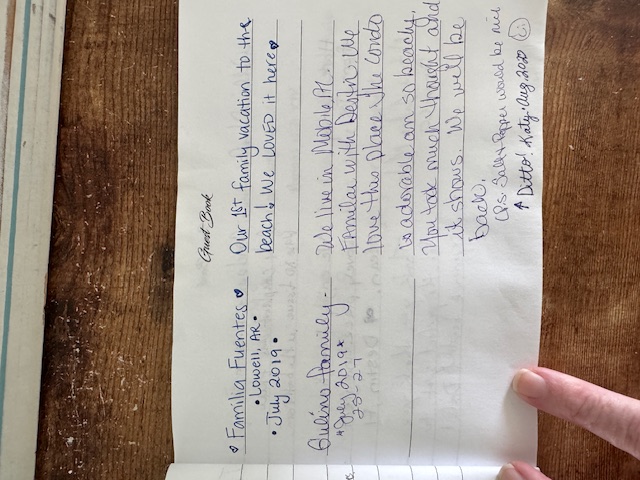 Guest Book
♥ Familia Fuentes ♥ Our 1st family vacation to the
• Lowell, AR • beach! We LOVED it here♥
• July 2019 •
family - We live in Mobile Al.
*July 2019* Familar with Destin. We
23-27 love this place. The condo
is adorable an so beachy.
You took much thought and
it shows. We will be
back.
(Ps. Salt & Pepper would be nice
↑ Ditto! Katy • Aug 2020 ☺